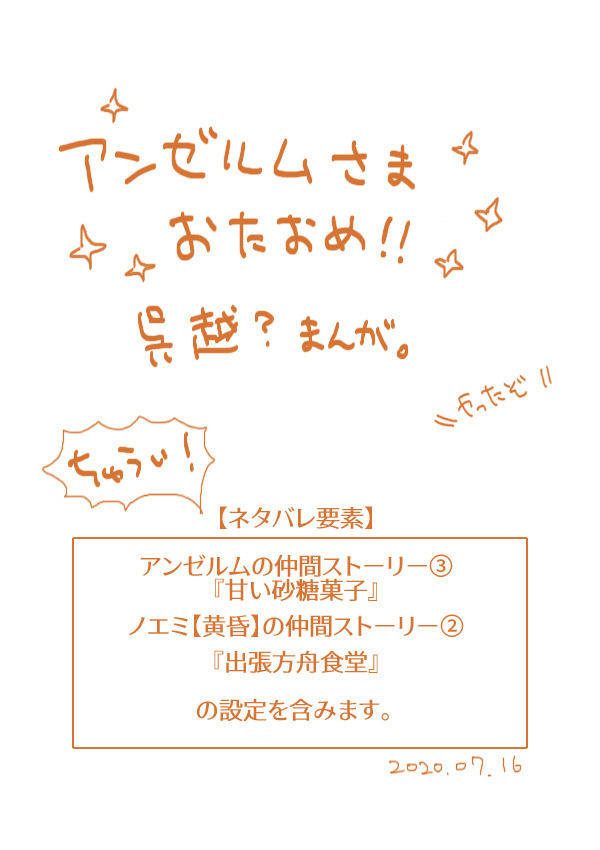 アンゼルムさま
おたおめ!!
呉越?まんが。
やったぞ
ちゅうい!
【ネタバレ要素】
アンゼルムの仲間ストーリー③
『甘い砂糖菓子』
ノエミ【黄昏】の仲間ストーリー②
『出張方舟食堂』
の設定を含みます。
2020.07.16